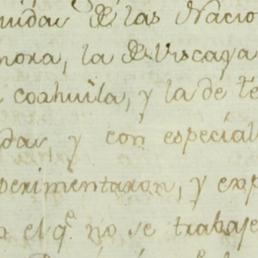 de las Nacio
nora, la de Viscaya
coahuila, y la de te
dar, y con especial
perimentaron, y exp
el q.e no se trabaje